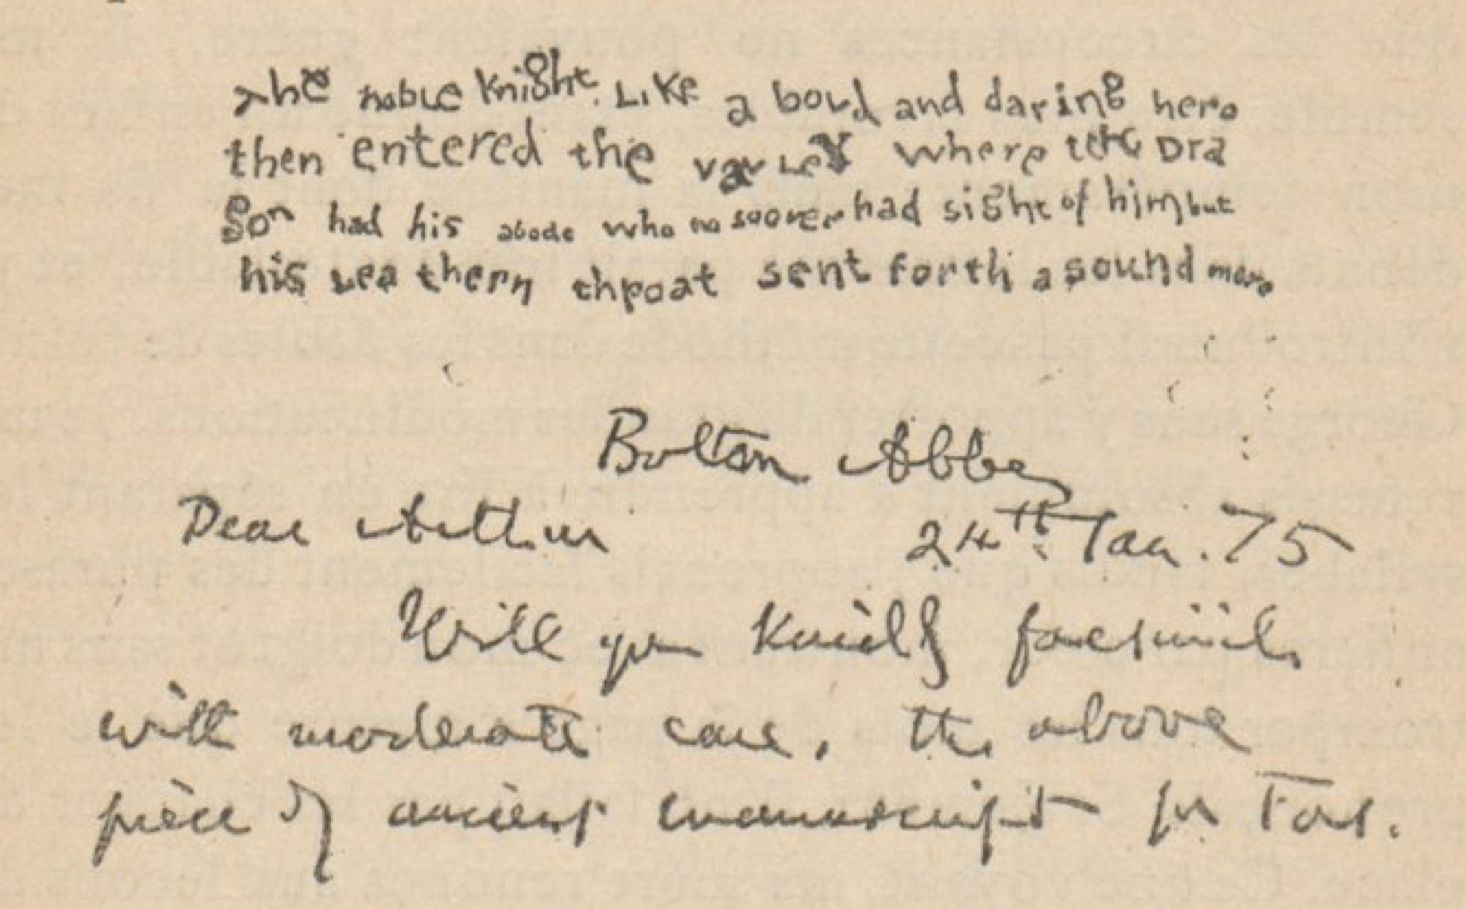 The noble Knight. Like a bould and daring hero
then entered the valley where the Dra
gon had his abode who no sooner had sight of him but
his leathern throat sent forth a sound more
Bolton Abbey
Dear Arthur 24th Jan. 75
Will you kindly facsimile
with moderate care, the above
piece of ancient manuscript for Fors.